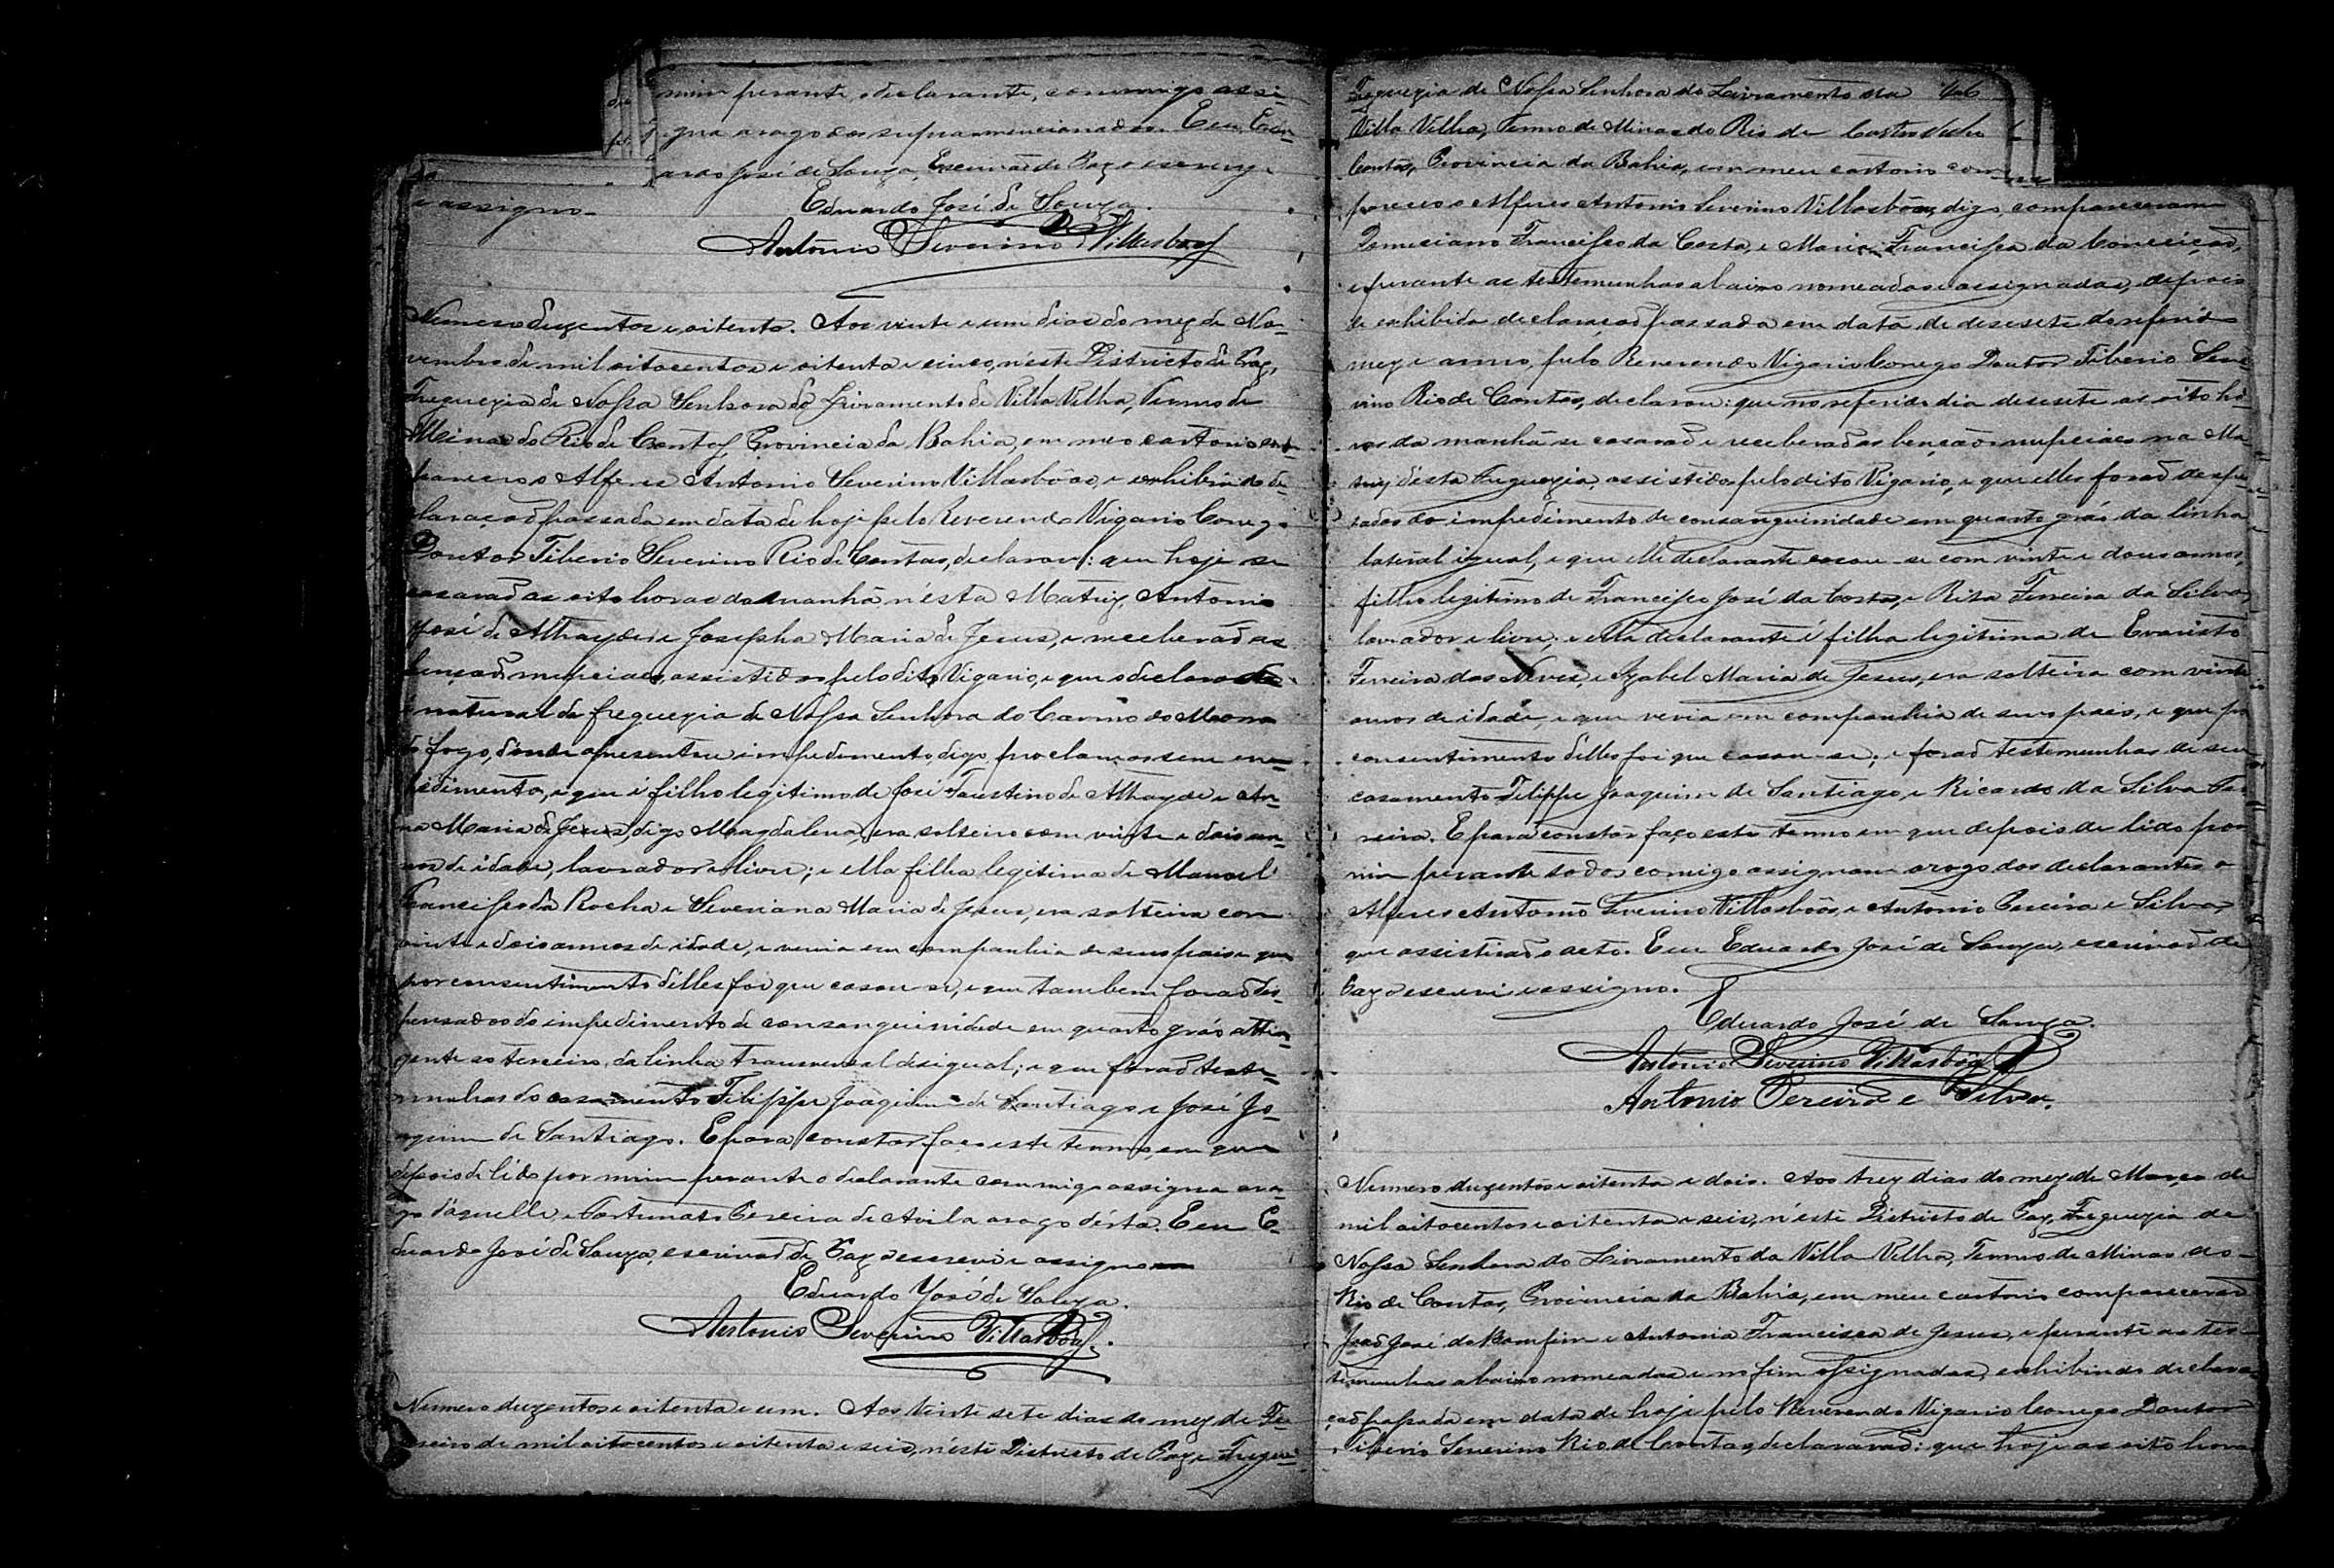 mim perante, o declarante, commigo assi-
gna arogo dos supra mencionados. Eu, Edu-
ardo José de Souza, Escrivão de Paz o escrevy
e assigno.
Eduardo José de Souza.
Antonio Severino Villasboas
Numero duzentos e oitenta. Aos vinte e um dias do mez de No-
vembro de mil oitocentos e oitenta e cinco, n'este Districto de Paz,
Freguezia de Nossa Senhora do Livramento de Villa Velha, Termo de
Minas do Rio de Contas, Provincia da Bahia, em meo cartorio com-
pareceo o Alferes Antonio Severino Villasbôas, e exhibindo de-
claração passada em data de hoje pelo Reverendo Vigario Conego
Doutor Tiberio Severino Rio de Contas, declarou: que hoje se
casarão as oito horas da manhã n'ésta Matriz, Antonio
José de Athayde e Josepha Maria de Jesus, e receberão as
bençãos nupciaes assistidos pelo dito Vigario, e que o declarante
é natural da freguezia de Nossa Senhora do Carmo do Morro
do fogo, donde apresentou impedimento, digo, proclamas sem im-
pedimento, e que é filho legitimo de José Faustino de Athayde e An-
na Maria de Jesus, digo Magdalena, era solteiro com vinte e dois an-
nos de idade, lavrador e livre; e ella filha legitima de Manoel
Francisco da Rocha e Severiana Maria de Jesus, era solteira com
vinte e dois annos de idade, e vevia em companhia de seus pais e que
por consentimento d'elles foi que casou-se, e que tambem forão des-
pensados do impedimento de consanguinidade em quarto gráo attin-
gente ao terceiro, da linha transversal desigual; e que forão teste-
munhas do casamento Filippe Joaquim de Santiago e José Jo-
aquim de Santiago. E para constar faço este termo, em que
depois de lido por mim perante o declarante commigo assigna aro-
go d'aquelle, e Fortunato Pereira de Avila arogo d'ésta. E eu E-
duardo José de Souza, escrivão de Paz o escrevi e assigno
Eduardo José de Souza.
Antonio Severino Villasboas.
Numero duzentos e oitenta e um. Aos vinte sete dias do mez de Fe-
vereiro de mil oitocentos e oitenta e seis, n'éste Districto de Paz, e Fregue-
Freguezia de Nossa Senhora do Livramento da 146
Villa Velha, Termo de Minas do Rio de
Contas, Provincia da Bahia, em meu cartorio com-
pareceo o Alferes Antonio Severino Villasbôas, digo, compareceram
Domiciano Francisco da Costa, e Maria Francisca da Conceição,
e perante as testemunhas abaixo nomeadas e assignadas, depois
de exhibida declaração passada em data de desesete do referido
mez e anno, pelo Reverendo Vigario Conego Doutor Tiberio Seve-
rino Rio de Contas, declarou: que no referido dia desesete as oito ho-
ras da manhã se casarão e receberão as bençãos nupciaes na Ma-
triz d'ésta Freguezia, assistidos pelo dito Vigario, e que elles forão despen-
sados do impedimento de consanguinidade em quarto gráo da linha
lateral igual, e que elle declarante casou-se com vinte e dous annos,
filho legitimo de Francisco José da Costa, e Rita Ferreira da Silva,
lavrador e livre; e ella declarante é filha legitima de Evaristo
Ferreira das Neves, e Izabel Maria de Jesus, era solteira com vinte
annos de idade, e que vevia em companhia de seus paes, e que por
consentimento d'elles foi que casou-se; e forão testemunhas de seu
casamento Filippe Joaquim de Santiago, e Ricardo da Silva Fer-
reira. E para constar faço este termo em que depois de lido por
mim perante todos comigo assignam arogo dos declarantes o
Alferes Antonio Severino Villasbôas, e Antonio Pereira e Silva,
que assistirão o acto. E eu Eduardo José de Souza, escrivão de
Paz o escrevi e assigno.
Eduardo José de Souza.
Antonio Severino Villasbôas
Antonio Pereira e Silva.
Numero duzentos e oitenta e dois. Aos trez dias do mez de Março de
mil oitocentos e oitenta e seis, n'éste Districto de Paz, Freguezia de
Nossa Senhora do Livramento da Villa Velha, Termo de Minas do
Rio de Contas, Provincia da Bahia, em meu cartorio comparecerão
João José do Bomfim e Antonia Francisca de Jesus, e perante as tes-
temunhas abaixo nomeadas e no fim assignadas, exhibindo declara-
ção passada em data de hoje pelo Reverendo Vigario Conego Doutor
Tiberio Severino Rio de Contas, declararão: que hoje as oito horas